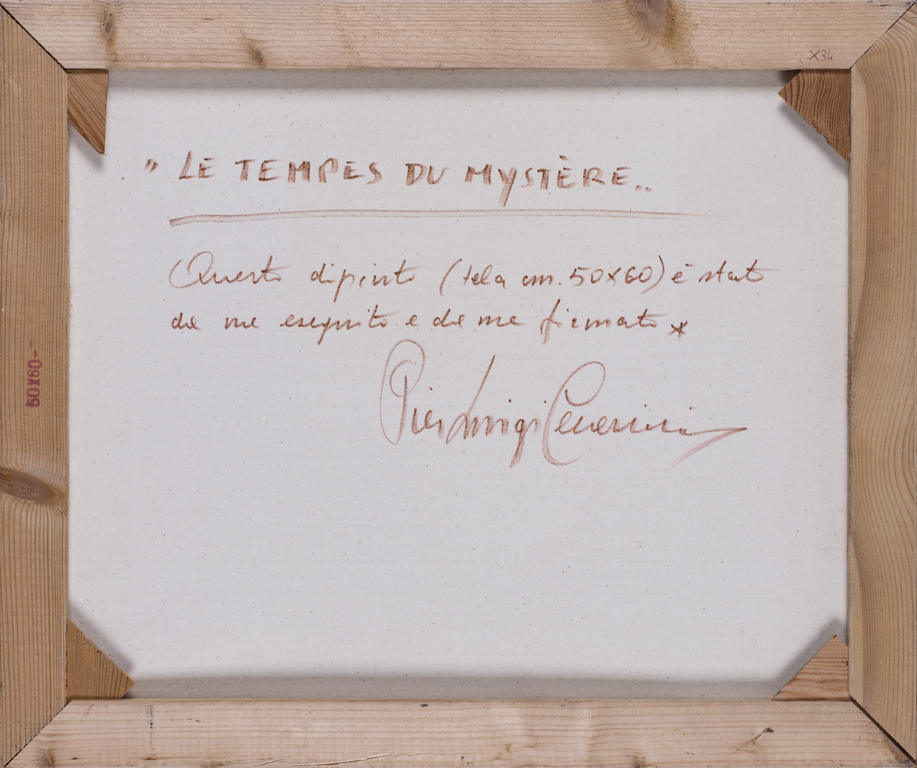 X34
" LE TEMPES DU MYSTÈRE..
Questo dipinto (tela cm. 50x60) è stato
da me eseguito e da me firmato *
Pier Luigi
50X60-